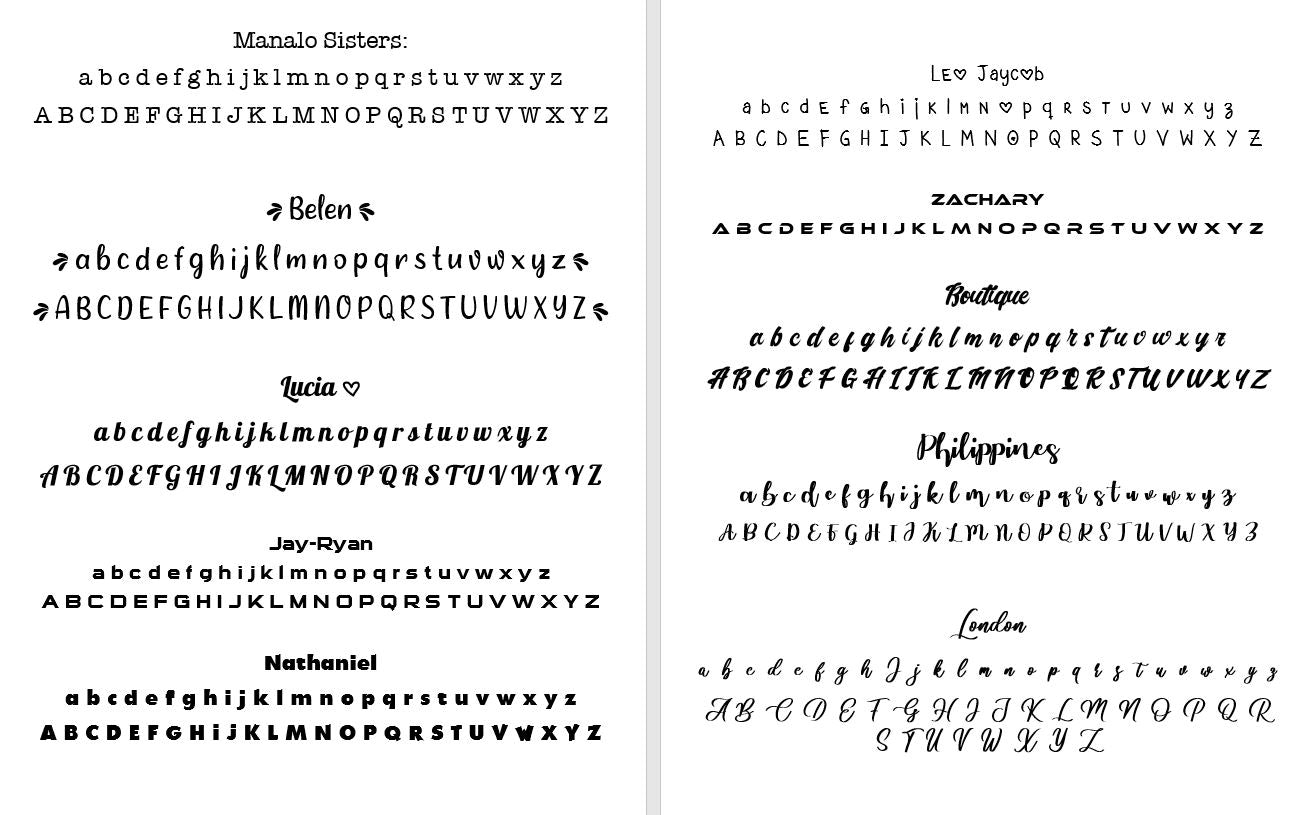 Manalo Sisters:
a b c d e f g h i j k l m n o p q r s t u v w x y z
A B C D E F G H I J K L M N O P Q R S T U V W X Y Z
Belen
a b c d e f g h i j k l m n o p q r s t u v w x y z
A B C D E F G H I J K L M N O P Q R S T U V W X Y Z
Lucia ♡
a b c d e f g h i j k l m n o p q r s t u v w x y z
A B C D E F G H I J K L M N O P Q R S T U V W X Y Z
Jay-Ryan
a b c d e f g h i j k l m n o p q r s t u v w x y z
A B C D E F G H I J K L M N O P Q R S T U V W X Y Z
Nathaniel
a b c d e f g h i j k l m n o p q r s t u v w x y z
A B C D E F G H i j K L M N O P Q R S T U V W X Y Z
LE♡ Jayc♡b
a b c d E f G h i j K l M N ♡ p q R S T U V W X y z
A B C D E F G H I J K L M N O P Q R S T U V W X Y Z
ZACHARY
A B C D E F G H I J K L M N O P Q R S T U V W X Y Z
Boutique
a b c d e f g h i j k l m n o p q r s t u v w x y z
A B C D E F G H I J K L M N O P Q R S T U V W X Y Z
Philippines
a b c d e f g h i j k l m n o p q r s t u v w x y z
A B C D E F G H I J K L M N O P Q R S T U V W X Y Z
London
a b c d e f g h J j k l m n o p q r s t u v w x y z
A B C D E F G H I J K L M N O P Q R
S T U V W X Y Z